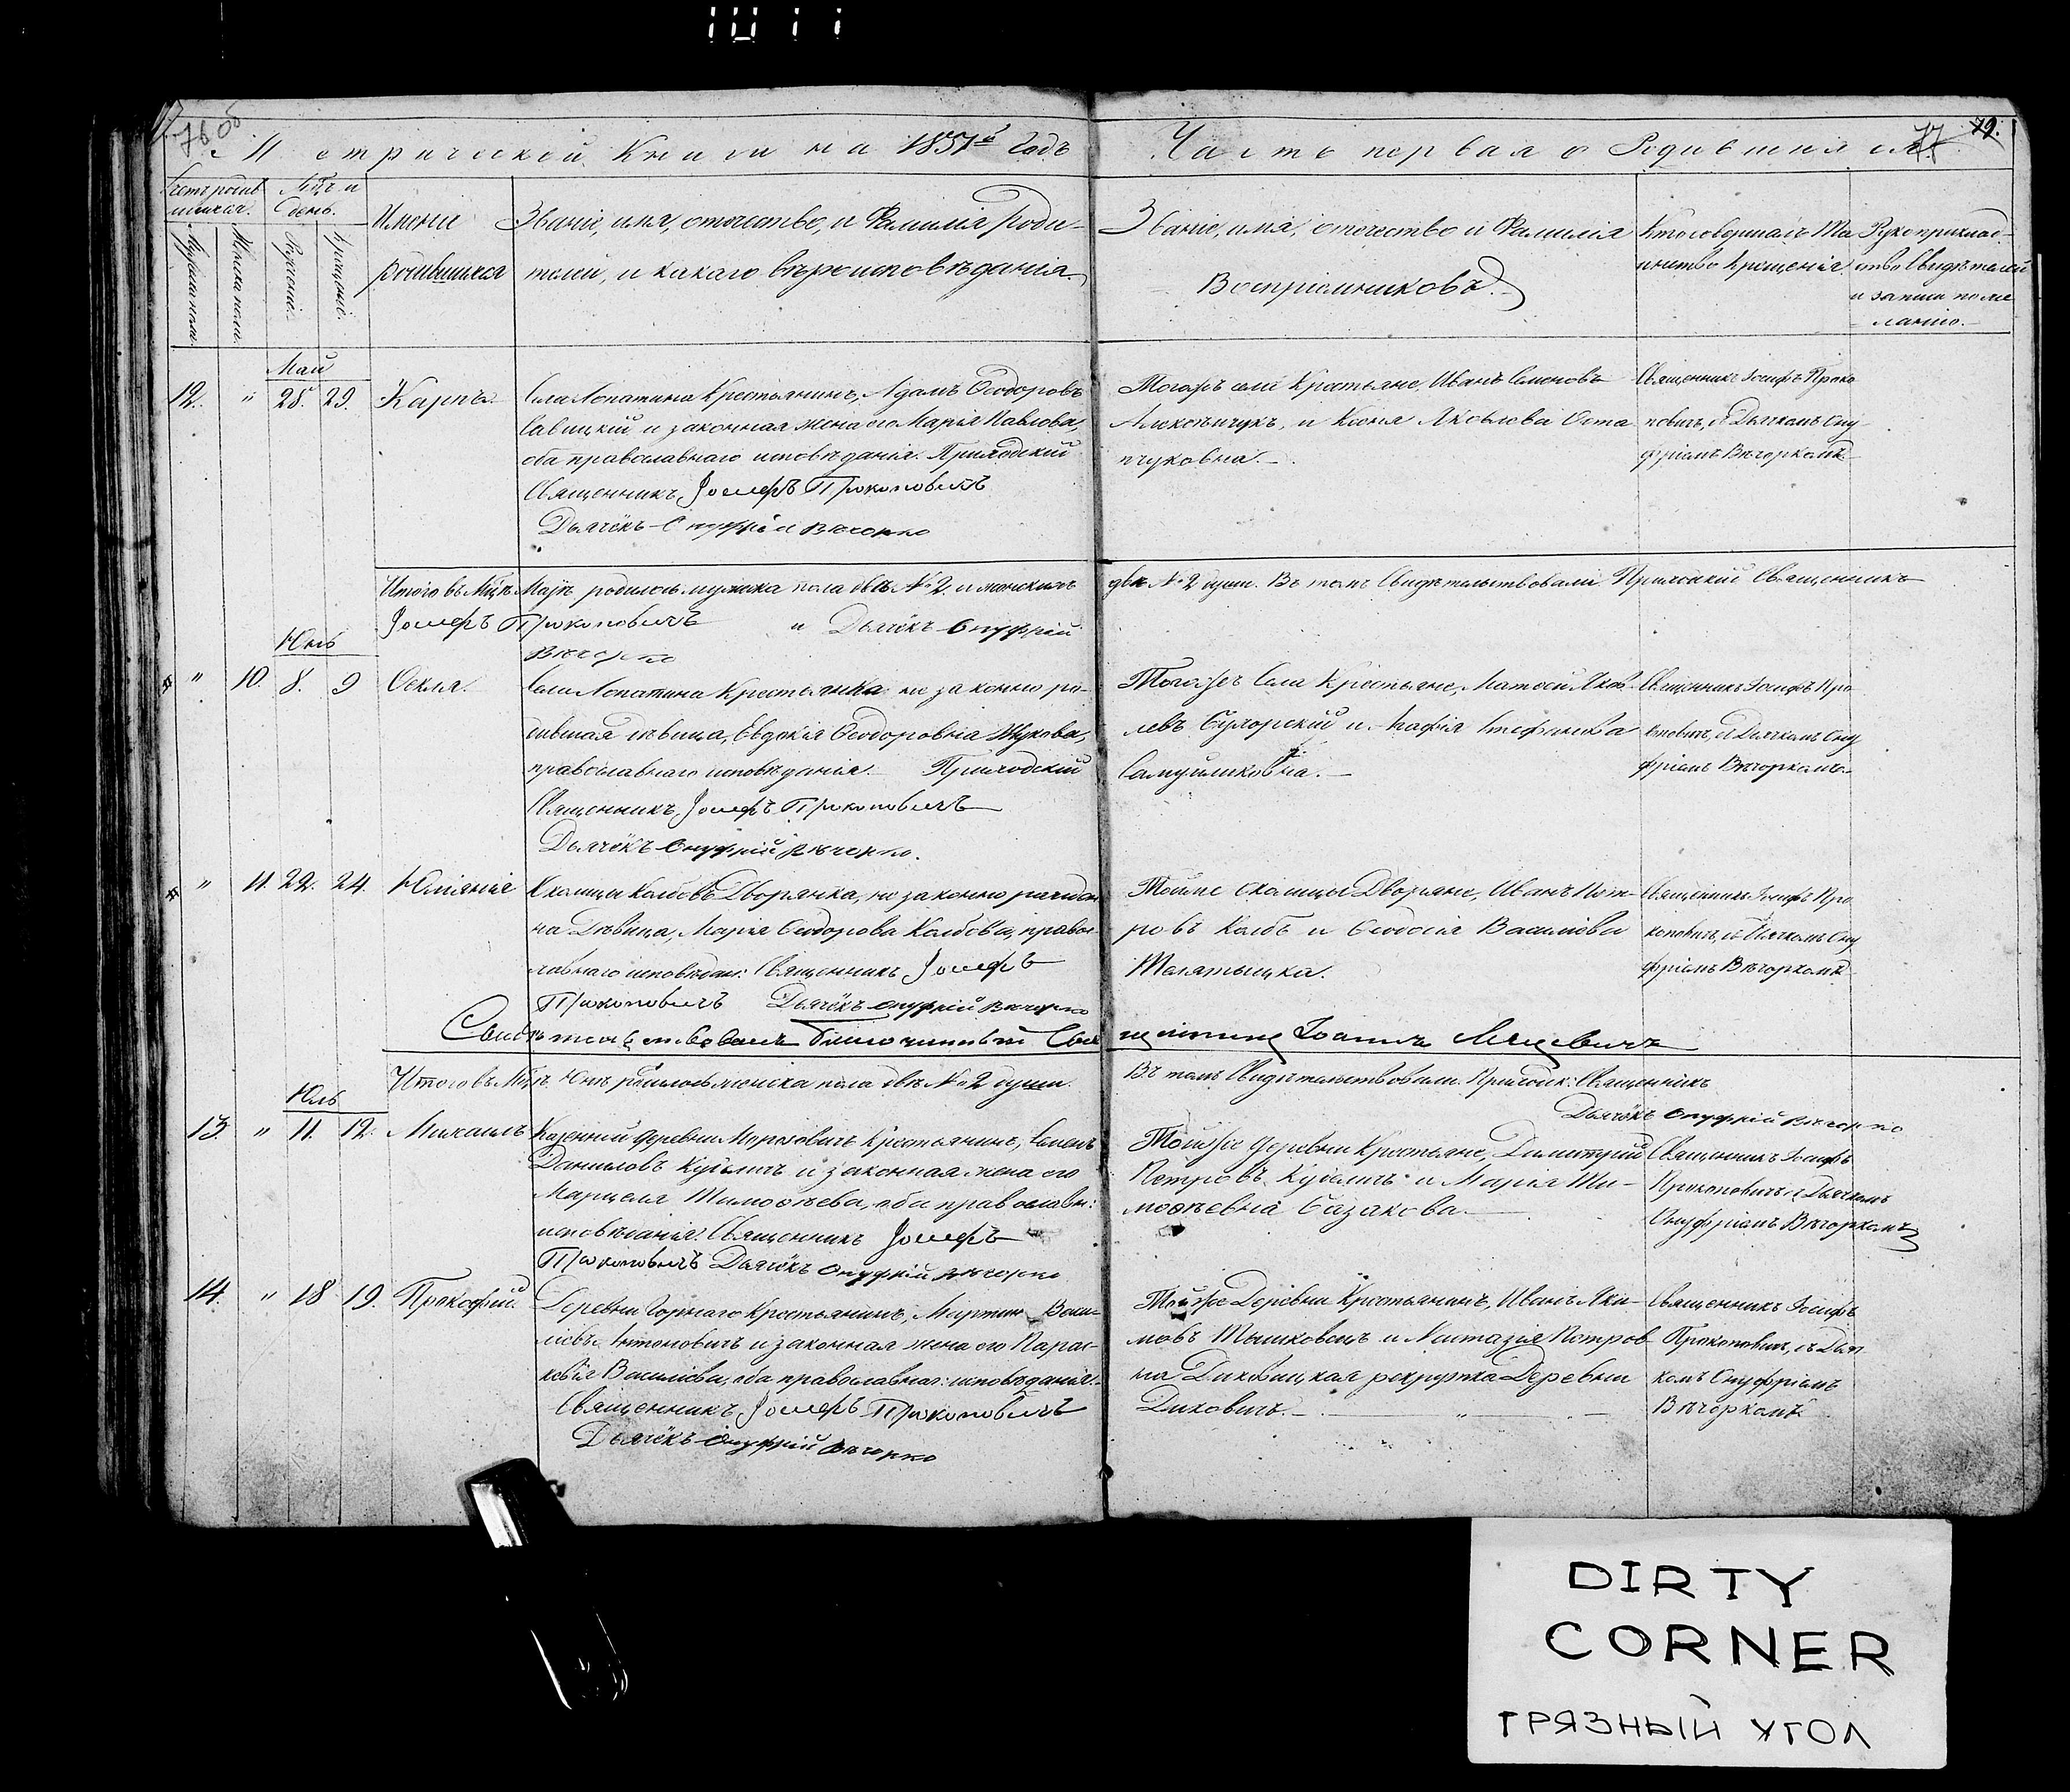 1011
76 об
Метрической Книги на 1851й Годъ
Часть первая о Родившихся.
77 79.
Счетъ родив
шихся.
Мцъ и
день.
Мужска пола.
Женска пола.
Рожденіе.
Крещеніе.
Имена
родившихся
Званіе, имя, отечество, и Фамилія Роди-
телей, и какаго вѣроисповѣданія.
Званіе, имя, отечество и Фамилія
Воспріемниковъ.
Кто совершалъ Та
инство крещенія.
Рукоприклад-
ство Свидѣтелей
и записи по же
ланію.
Май
12. " 28. 29. Карпъ.
Села Лопатина Крестьянинъ, Адамъ Ѳеодоровъ
Савицкій и законная жена его Марія Павлова,
оба православнаго исповѣданія. Приходскій
Священникъ Іосифъ Прокоповичъ
Дьячёкъ Онуфрій Вѣчорко
Тогожъ села Крестьяне, Иванъ Семеновъ
Алексѣичукъ, и Ксенія Яковлева Оста
пчуковна.
Священникъ Іосифъ Проко
повичъ, съ Дьячкомъ Ону
фріемъ Вѣчоркомъ
Итого въ Мцѣ Маѣ родилось мужска пола двѣ № 2. и женскихъ
двѣ № 2 души. Въ томъ Свидѣтельствовали Приходскій Священникъ
Іосифъ Прокоповичъ и Дьячёкъ Онуфрій
Вѣчорко
Юнь
" 10. 8. 9 Ѳекля.
Села Лопатина Крестьянка не законно ро-
дившая дѣвица, Евдокія Ѳеодоровна Жукова,
православнаго исповѣданія. Приходскій
Священникъ, Іосифъ Прокоповичъ
Дьячёкъ Онуфрій Вѣчорко.
Тогожъ Села Крестьяне, Матѳей Яков-
левъ Сухорскій и Агафія Стефанова
Самуйликовна.
Священникъ Іосифъ Про
коповичъ, съ Дьячкомъ Ону
фріемъ Вѣчоркомъ
" 11. 22. 24. Юліянія
Околицы Колбовъ Дворянка, не законно рожден
на Дѣвица, Марія Ѳеодорова Колбова, правос-
лавнаго исповѣдан: Священникъ Іосифъ
Прокоповичъ Дьячёкъ Онуфрій Вѣчорко
Тойже околицы Дворяне, Иванъ Пет-
ровъ Колбъ и Ѳеодосія Васильева
Телятыцка.
Священникъ Іосифъ Про
коповичъ, съ Дьячкомъ Ону
фріемъ Вѣчоркомъ
Свидѣтельствовалъ благочинный Священникъ Іоаннъ
Итого въ Мцѣ Юнѣ родилось женска пола двѣ № 2 души.
Въ томъ Свидѣтельствовали Приходск: Священникъ
Дьячёкъ Онуфрій Вѣчорко
Юль
13. " 11. 12. Михаилъ
Казенной Деревни Морозовичъ Крестьянинъ, Семенъ
Даниловъ Куделичъ и законная жена его
Марцеля Тимоѳеева, оба православн:
исповѣданія Священникъ Іосифъ
Прокоповичъ Дьячёкъ Онуфрій Вѣчорко
Тойжъ Деревни Крестьяне, Димитрій
Петровъ Куделичъ и Марія Ти-
моѳеевна Базакова
Священникъ Іосифъ
Прокоповичъ съ Дьячкомъ
Онуфріемъ Вѣчоркомъ
14. " 18 19. Прокофій.
Деревни Горнаго Крестьянинъ, Мартин Васи-
льевъ Антоновичъ и законная жена его Парас-
кевія Васильева, оба православнаг: исповѣданія.
Священникъ Іосифъ Прокоповичъ
Дьячёкъ Онуфрій Вѣчорко
Тойжъ Деревни Крестьянинъ, Иванъ Яки-
мовъ Тышковецъ и Настазія Петров
на Диковицкая рекрутка Деревни
Диковичъ.
Священникъ Іосифъ
Прокоповичъ, съ Дьяч
комъ Онуфріемъ
Вѣчоркомъ
DIRTY
CORNER
ГРЯЗНЫЙ УГОЛ